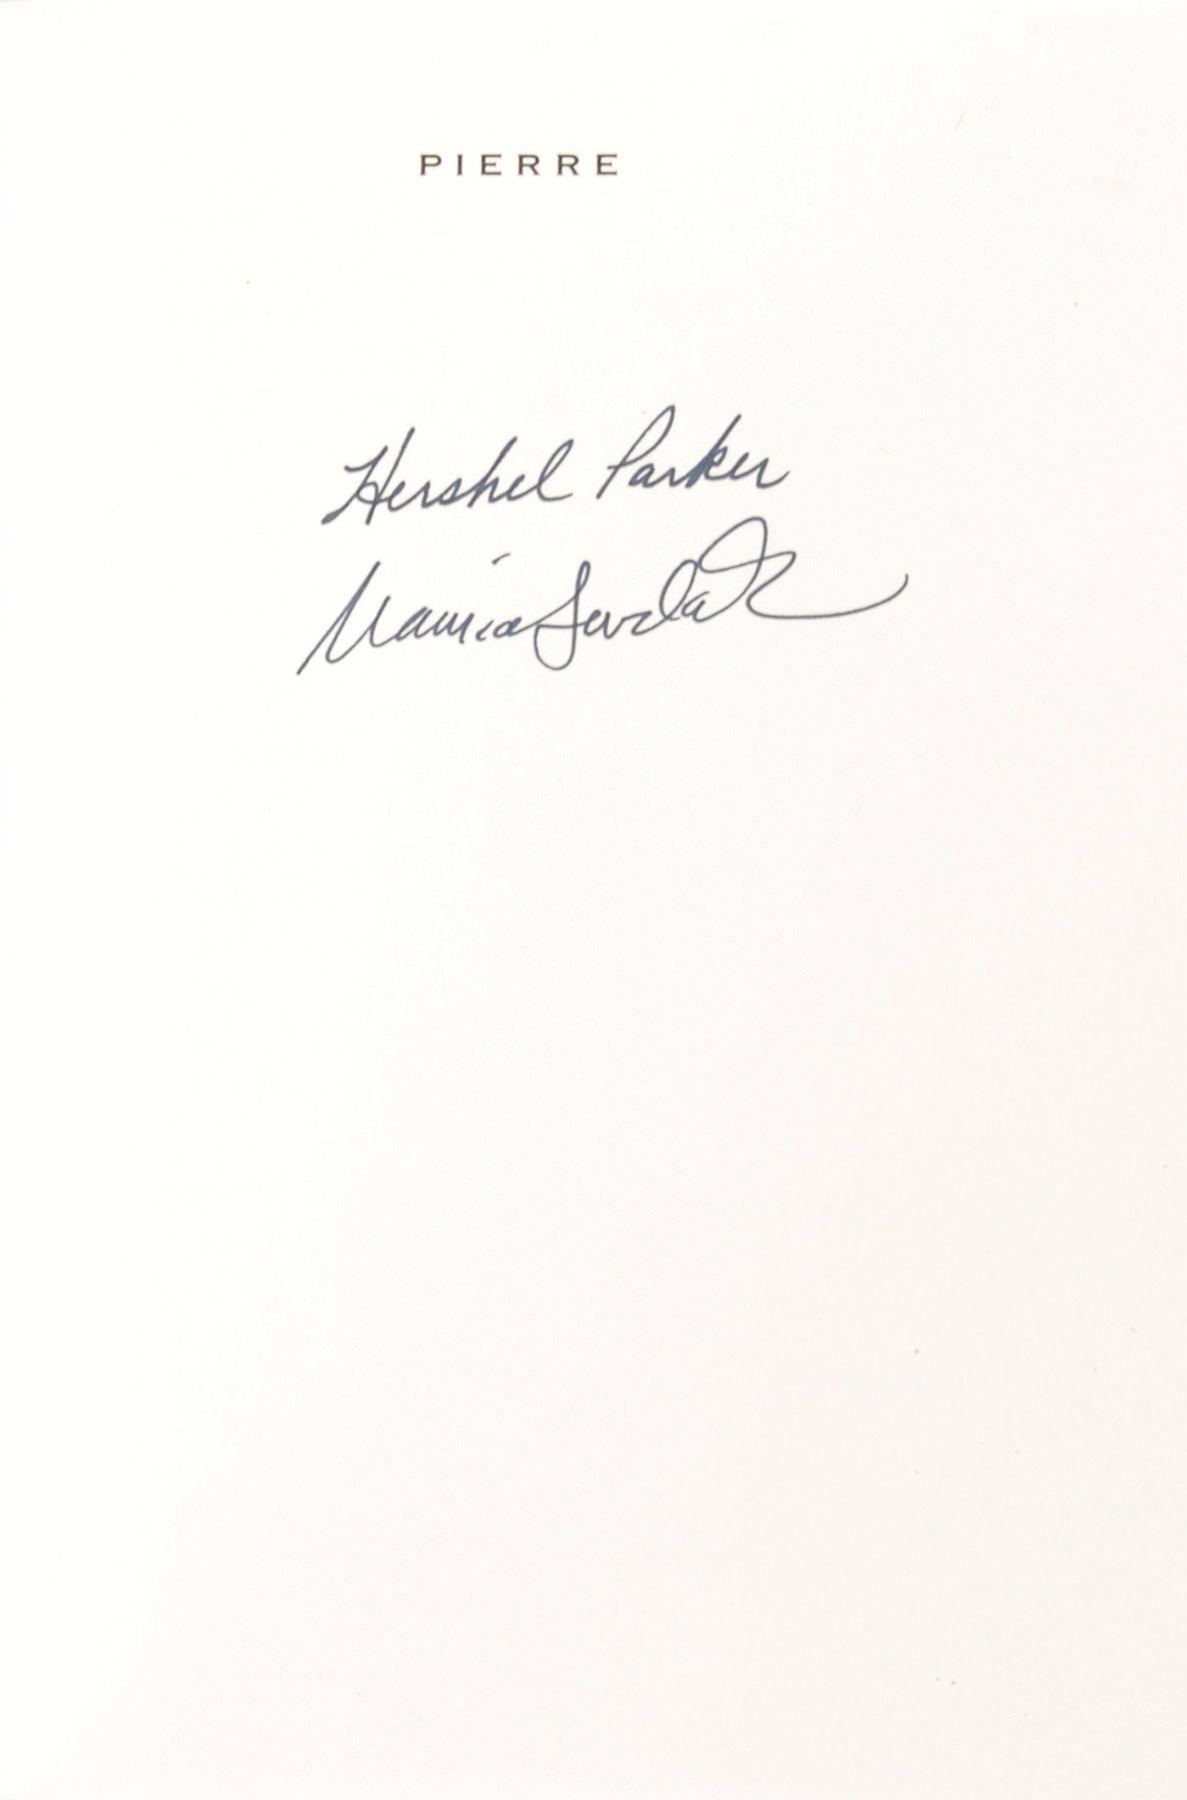 PIERRE
Hershel Parker
Maurice Sendak